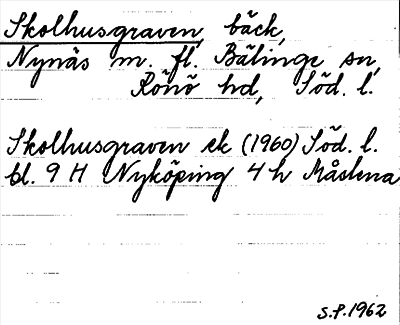 Skolhusgraven, bäck,
Nynäs m. fl. Bälinge sn,
Rönö hd, Söd. l.
Skolhusgraven ek (1960) Söd. l.
bl. 9 H Nyköping 4 h Måstena
S.P. 1962